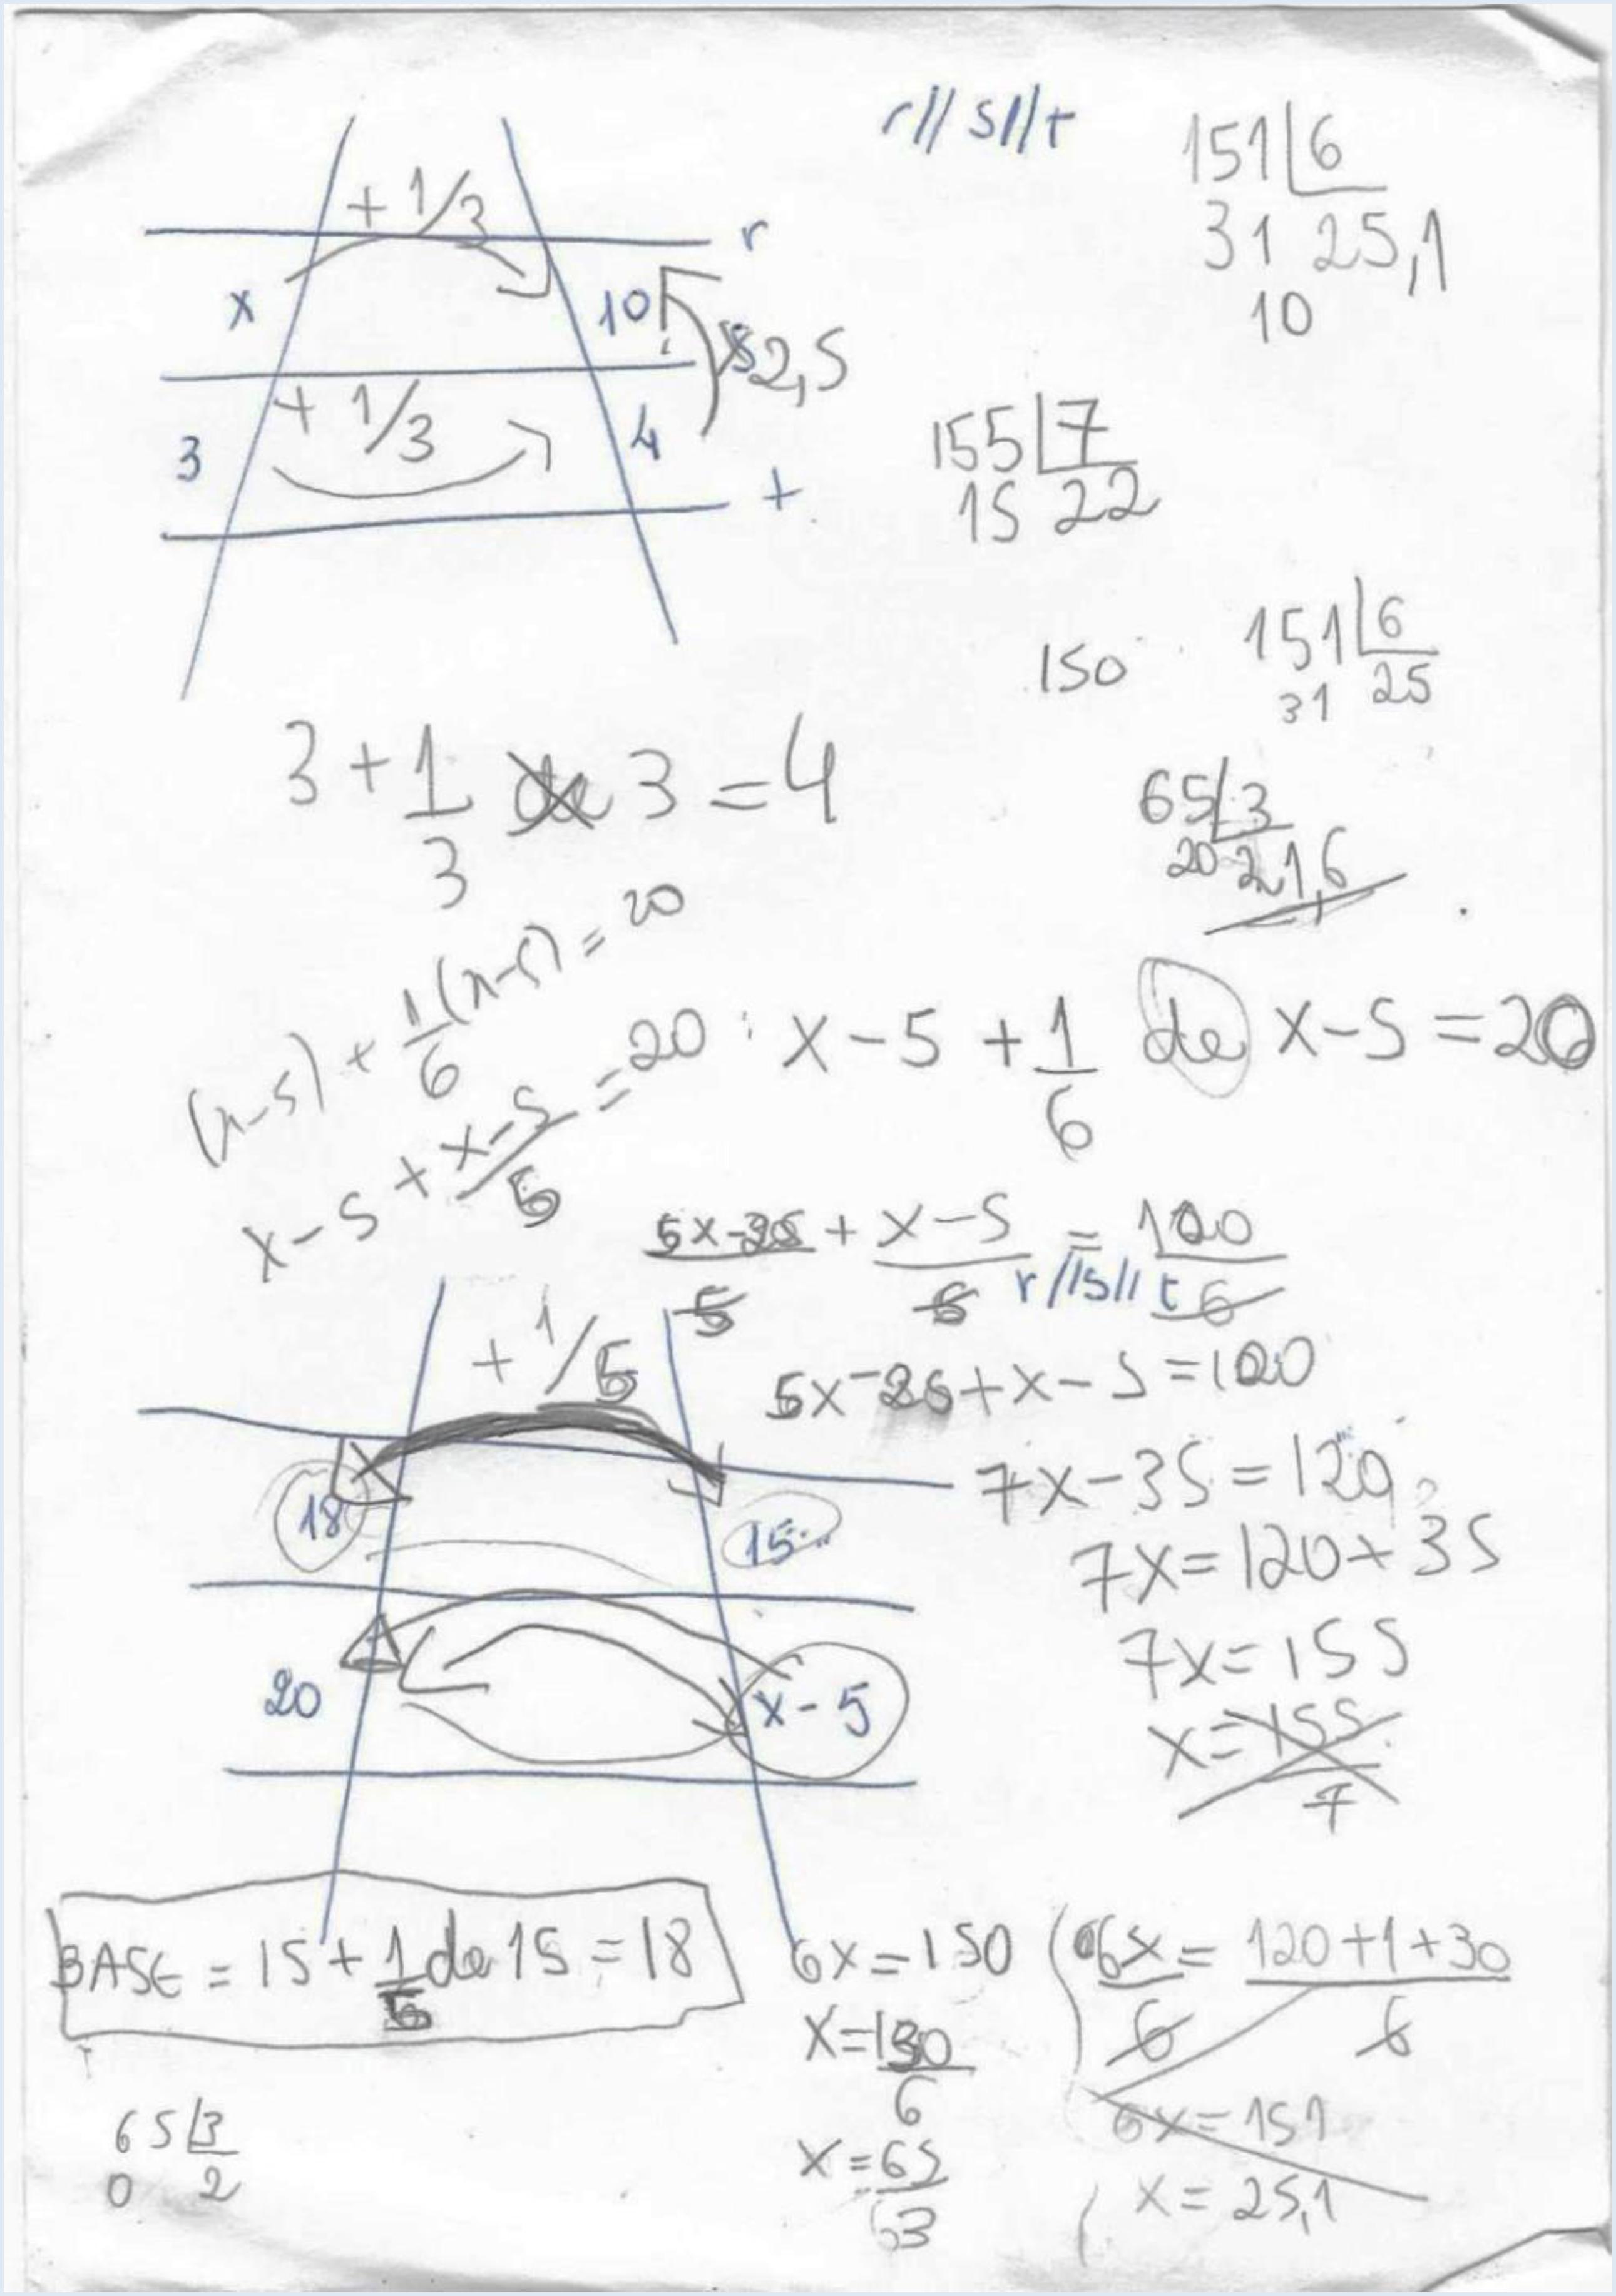 r//s//t
151 6
31 25,1
10
+ 1/3
r
x 10
2,5
+ 1/3
3 4
t
155 7
15 22
150
151 6
31 25
3 + 1/3 de 3 = 4
65 3
20 21,6
(x-5) + 1/6 (x-5) = 20
x-5 + 1/6 de x-5 = 20
x-5 + x-5/5 = 20
+ x-5/6 =
r//s//t 6
+ 1/5
+x-5=
18 15
7x-35=120
7x=120+35
20 x-5
7x=155
x=155/7
BASE = 15 + 1/5 de 15 = 18
6x=150
6x/6 = 120+1+30/6
6x=151
x=65/3
x=25,1
65 3
0 2